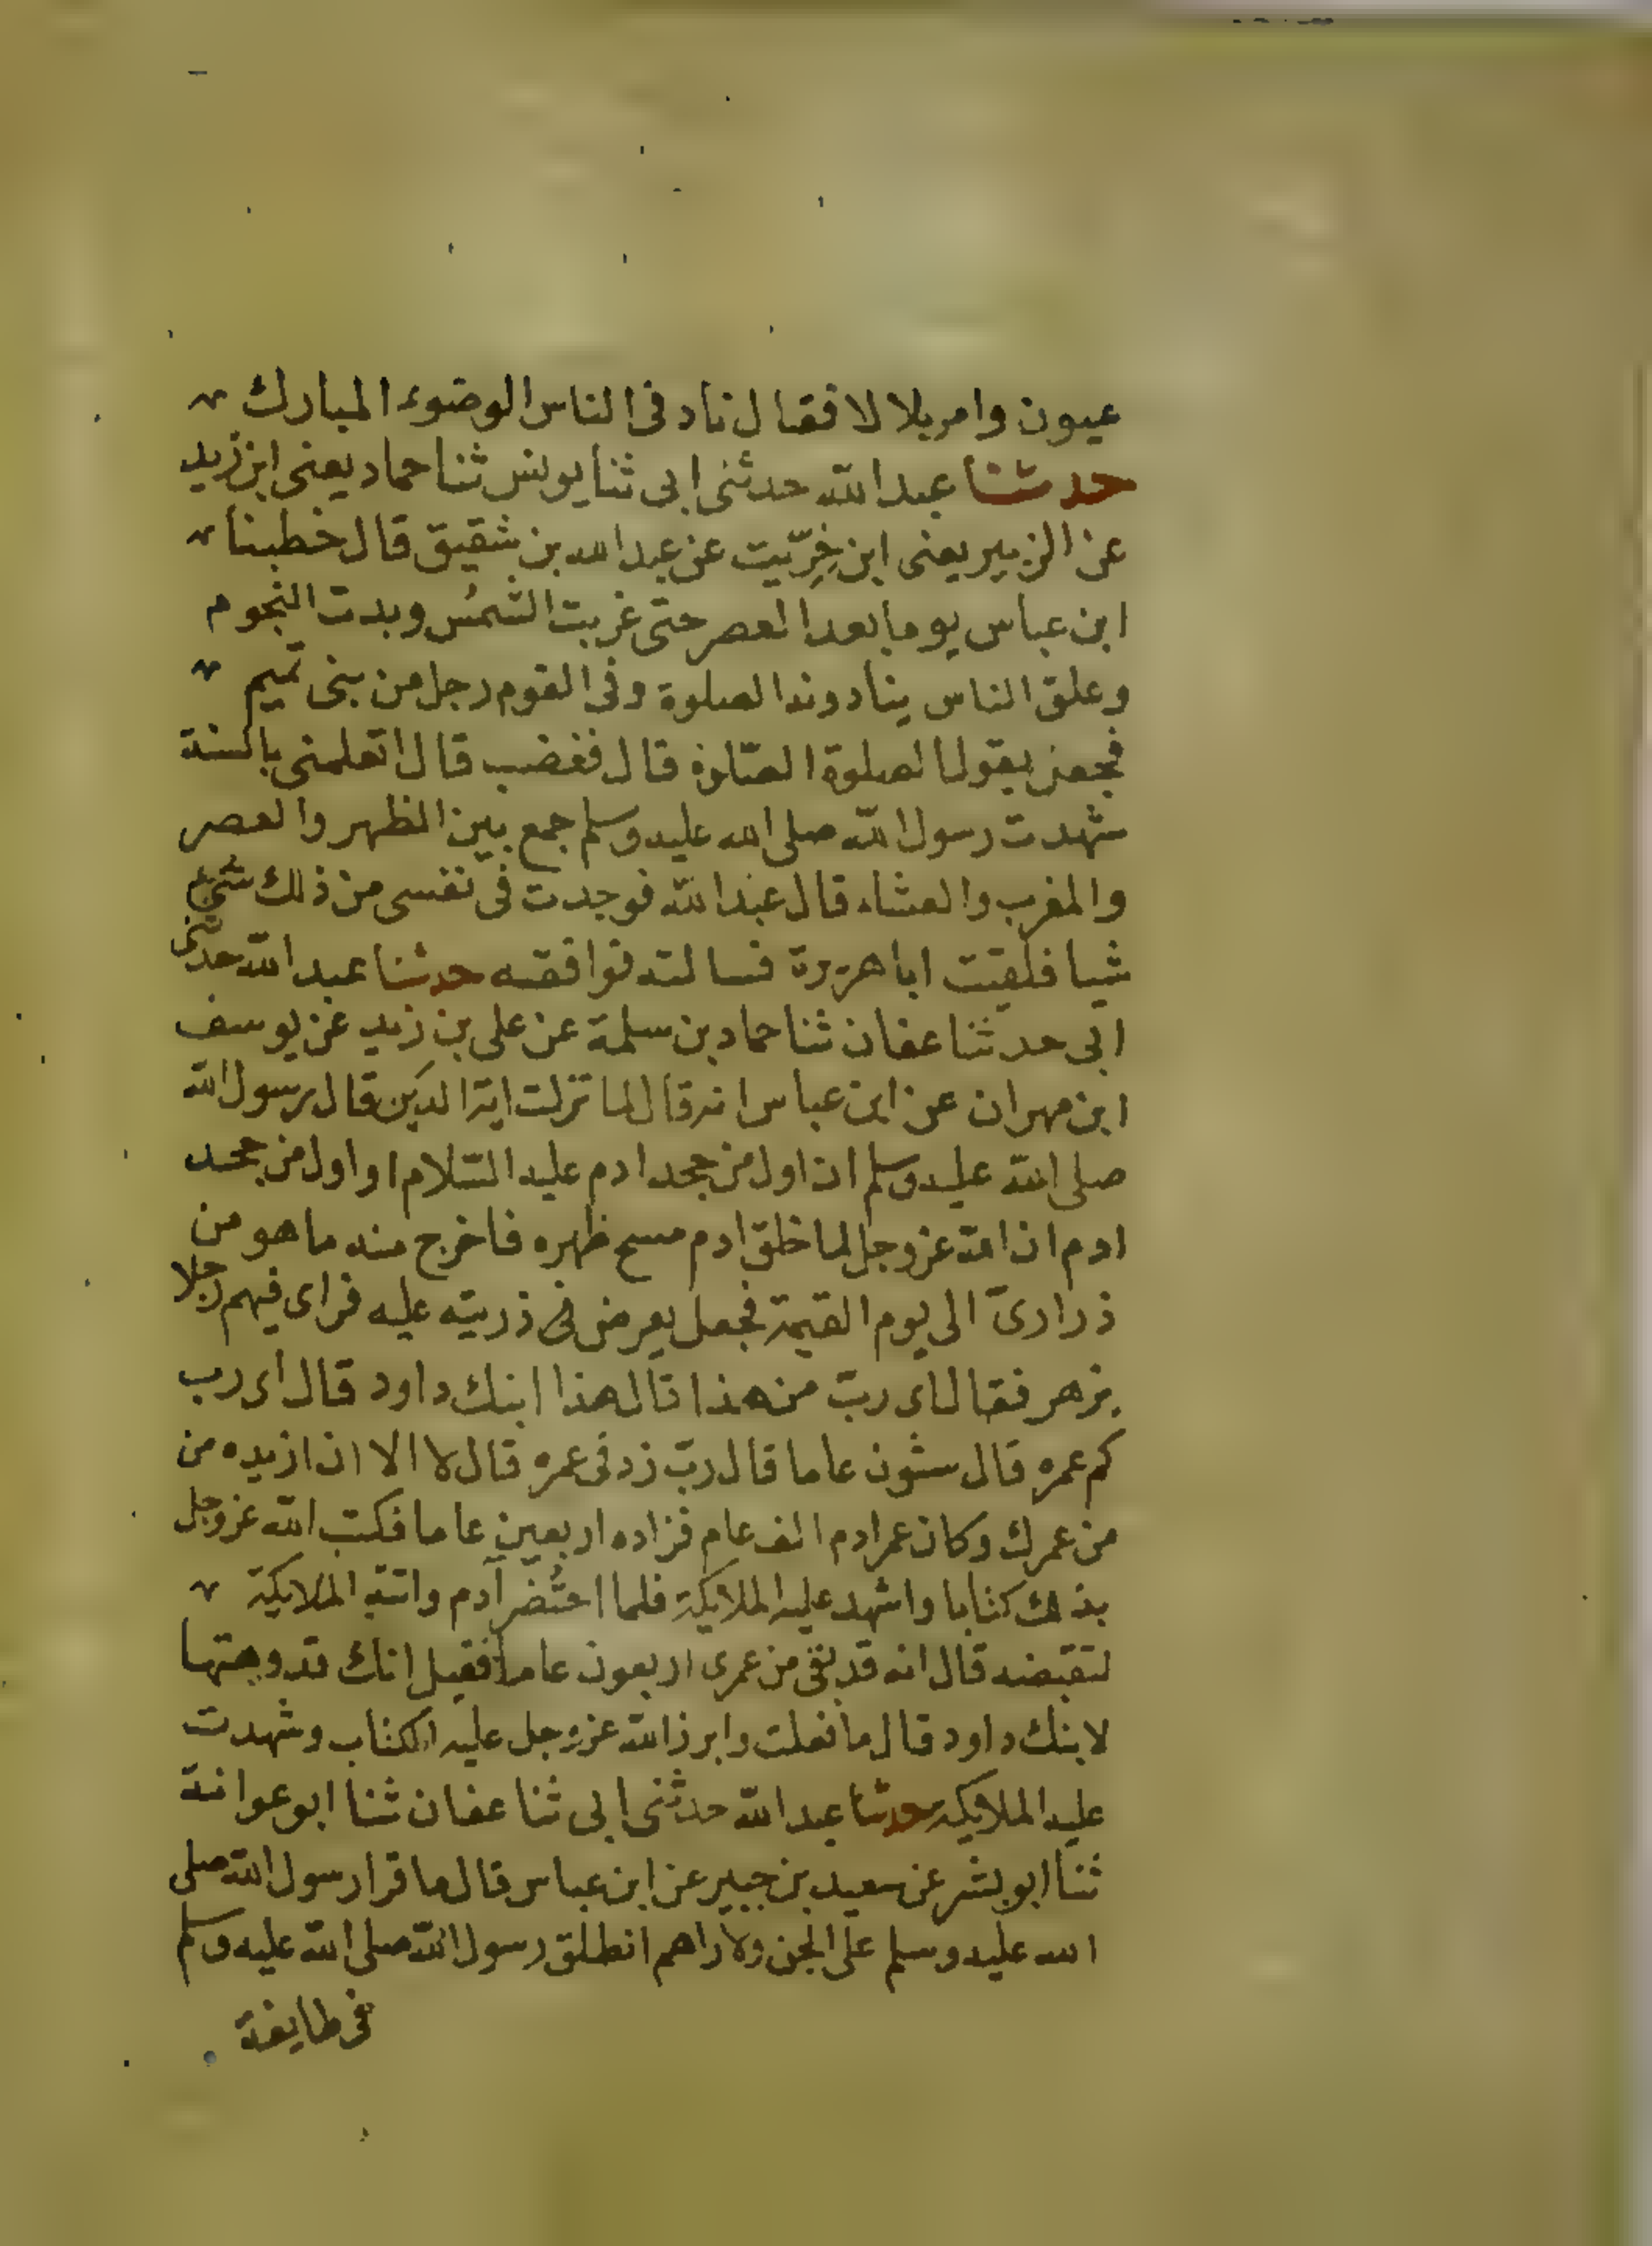 عيون وامر بلالا فقال ناد في الناس الوضوء المبارك
حدثنا عبد الله حدثني ابي ثنا يونس ثنا حماد يعني ابن زيد
عن الزبير يعني ابن خِرِّيت عن عبد الله بن شقيق قال خطبنا
ابن عباس يوما بعد العصر حتى غربت الشمس وبدت النجوم
وعلق الناس ينادونه الصلوة وفي القوم رجل من بني تميم
فجعل يقول الصلوة الصّلوة قال فغضب قال اتعلمني بالسنة
شهدت رسول الله صلى الله عليه وسلم جمع بين الظهر والعصر
والمغرب والعشاء قال عبد الله فوجدت في نفسي من ذلك شيء
شيا فلقيت ابا هريرة فسالته فوافقه حدثنا عبد الله حدثني
ابي حدثنا عفان ثنا حماد بن سلمة عن علي بن زيد عن يوسف
ابن مهران عن ابن عباس انه قال لما نزلت اية الدين قال رسول الله
صلى الله عليه وسلم ان اول من جحد ادم عليه السّلام او اول من جحد
ادم ان الله عز وجل لما خلق ادم مسح ظهره فاخرج منه ما هو من
ذراريّ الى يوم القيمة فجعل يعرض في ذريته عليه فراى فيهم رجلا
يزهر فقال اى ربّ من هذا قال هذا ابنك داود قال اى رب
كم عمره قال ستون عاما قال ربّ زد في عمره قال لا الا ان ازيده من
من عمرك وكان عمر ادم الف عام فزاده اربعين عاما فكتب الله عز وجل
بذلك كتابا واشهد عليه الملايكة فلما احتُضر آدم واتته الملايكة
لتقبضه قال انه قد بقي من عمرى اربعون عاما فقيل انك قد وهبتها
لابنك داود قال ما فعلت وابرز الله عز وجل عليه الكتاب وشهدت
عليه الملايكة حدثنا عبد الله حدثني ابي ثنا عفان ثنا ابو عوانة
ثنا ابو بشر عن سعيد بن جبير عن ابن عباس قال ما قرا رسول الله صلى
الله عليه وسلم على الجن ولا راهم انطلق رسول الله صلى الله عليه وسلم
في طايفة